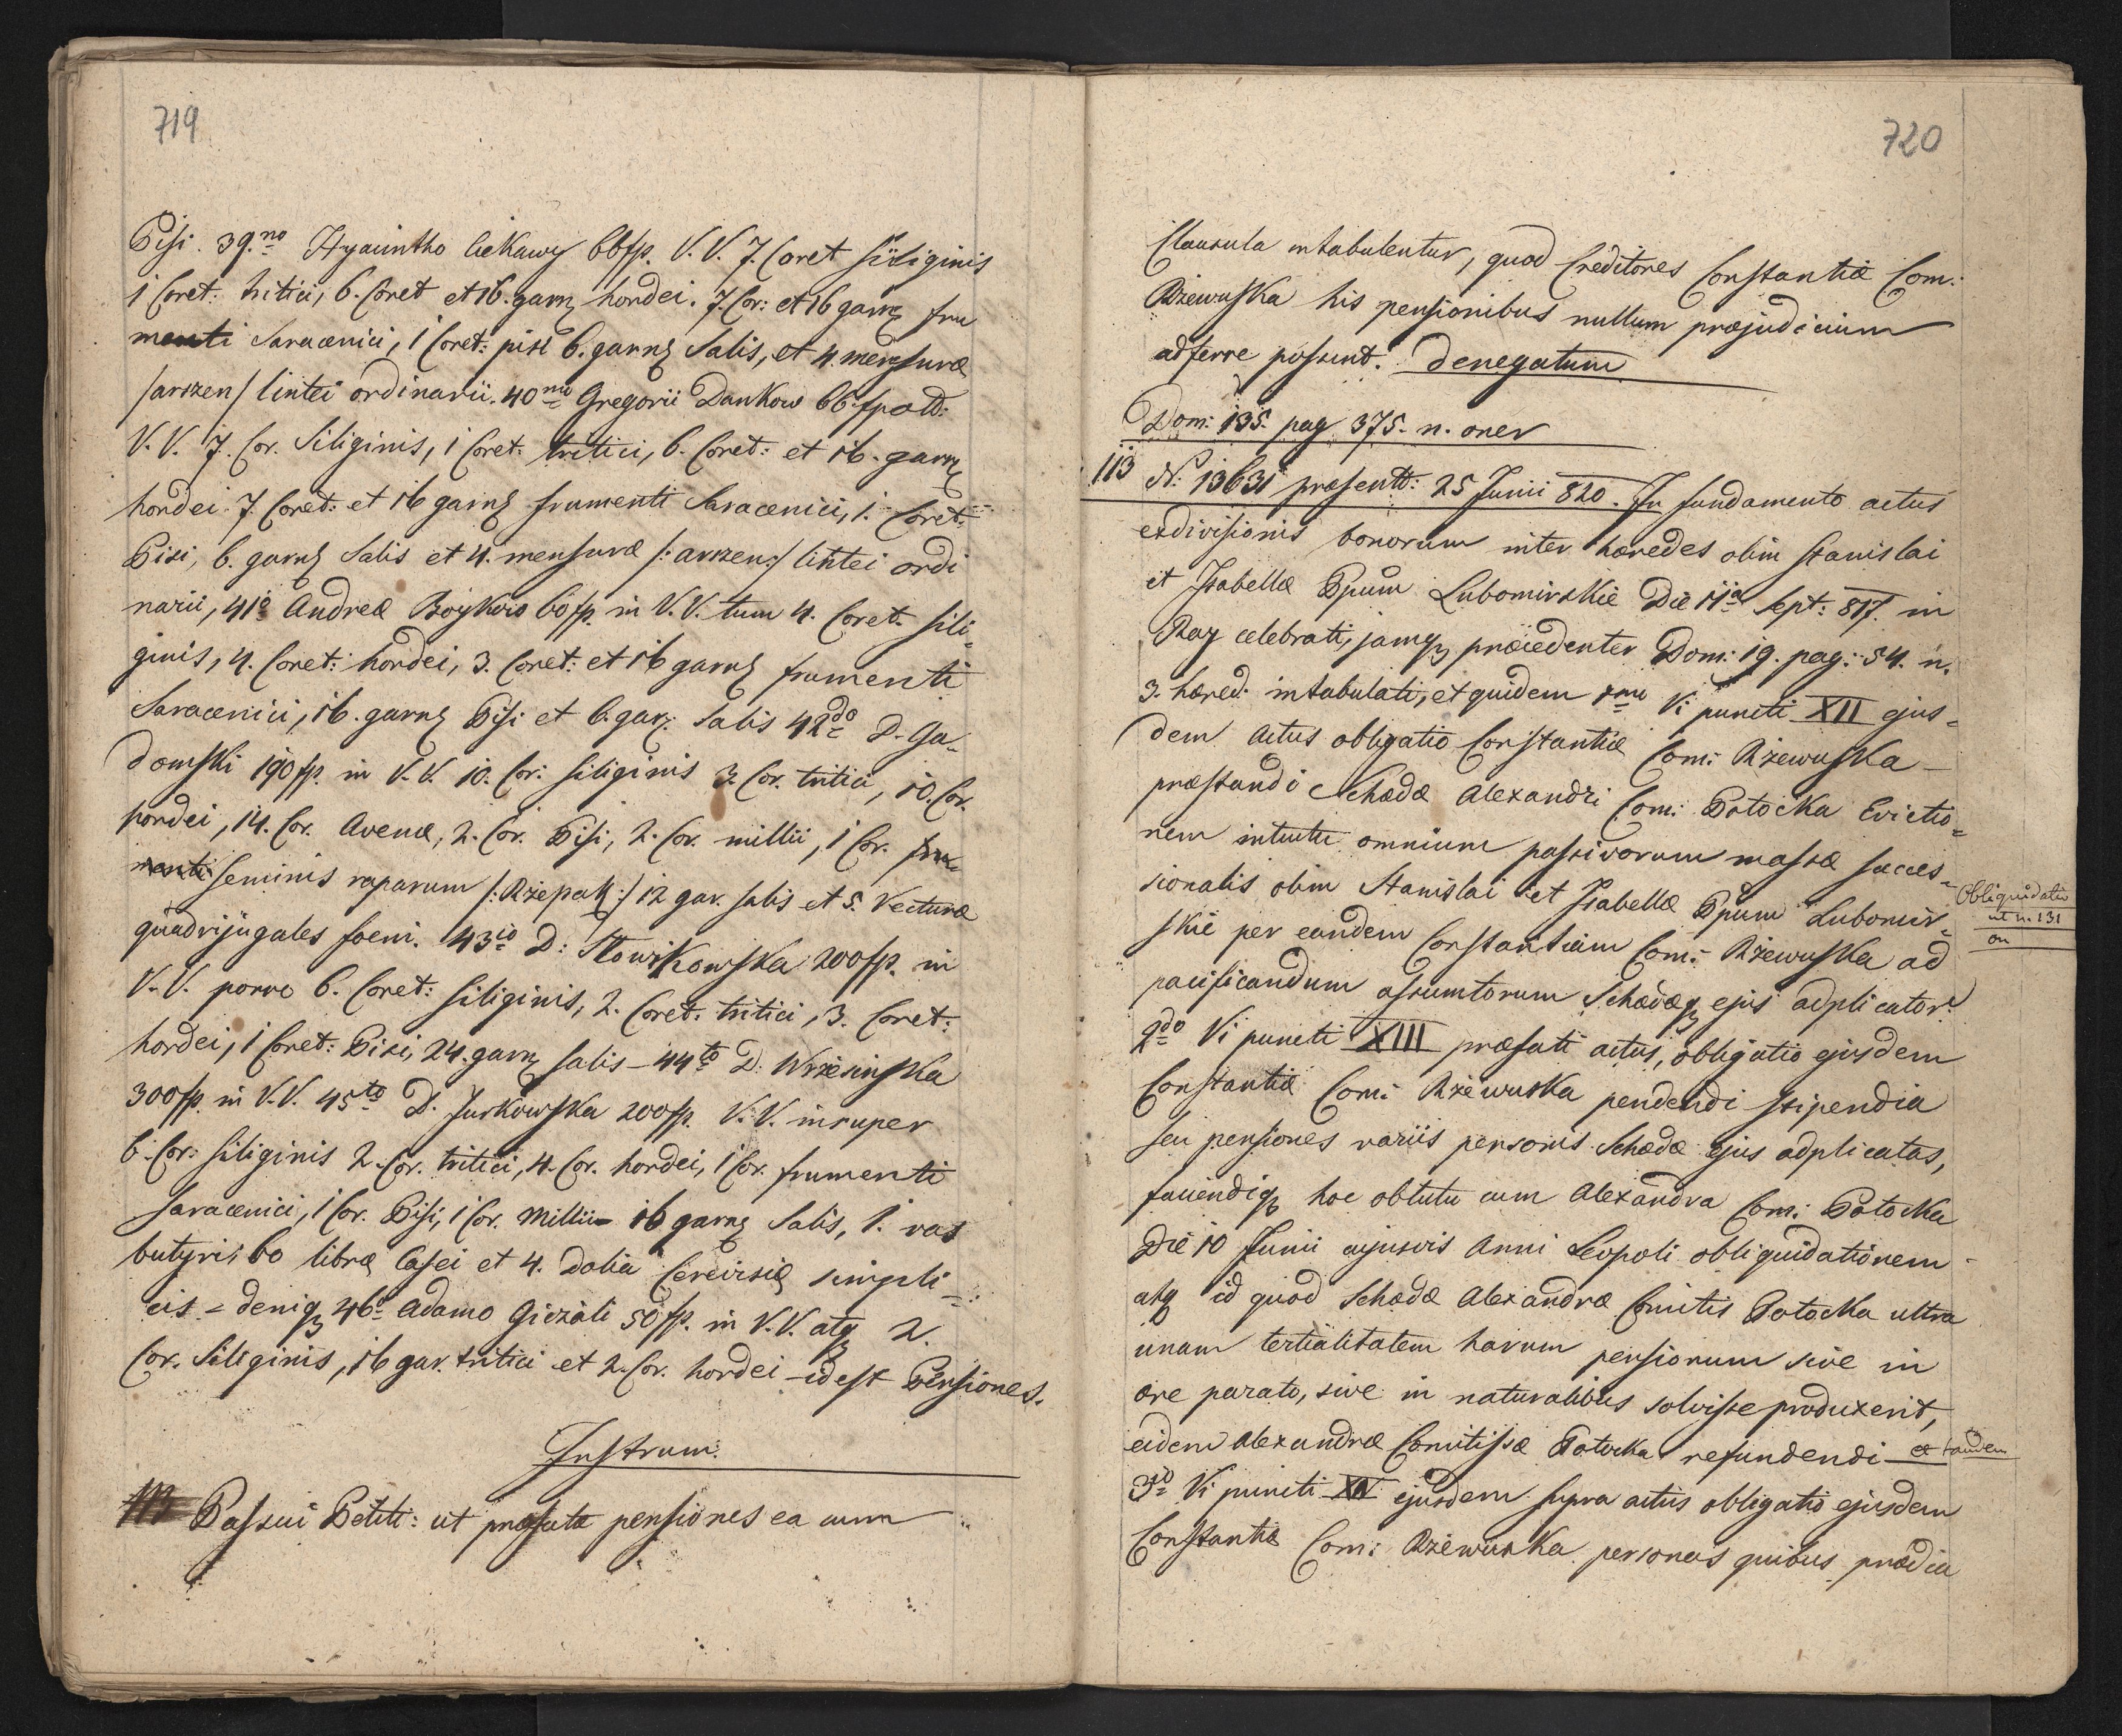 719
Pisi. 39.no Hyacintho Ciekawy 66 fp. V. V. 7. Coret siliginis
1 Coret: tritici, 6. Coret et 16. garn hordei. 7. Cor: et 16 garn fru
menti Saracenici, 1 Coret: pisi 6. garn Salis, et 4. mensuræ
/arszen/ lintei ordinarii. 40mo Gregorii Dankow 66 fp ad:
V. V. 7. Cor. Siliginis, 1 Coret: tritici, 6. Coret: et 16. garn
hordei 7. Coret: et 16 garn frumenti Saracenici, 1. Coret:
Pisi, 6. garn Salis et 4. mensuræ /: arszen:/ lintei ordi
narii, 41o Andreæ Boykow 60 fp. in V. V. tum 4. Coret. sili-
ginis, 4. Coret: hordei, 3. Coret: et 16 garn frumenti
Saracenici, 16. garn Pisi et 6. gar: Salis 42do D. Ga-
domski 190 fp. in V. V. 10. Cor: siliginis 3. Cor. tritici, 10. Cor.
hordei, 14. Cor. Avenæ, 2. Cor. Pisi, 2. Cor. millii, 1 Cor. fru-
menti seminis raparum /: Rżepak :/ 12 gar. salis et 5. Vecturæ
quadrijugales foeni. 43io D: Słowikowska 200 fp. in
V. V. porro 6. Coret: siliginis, 2. Coret. tritici, 3. Coret:
hordei, 1 Coret: Pisi, 24. garn salis - 44to D. Wrzesinska
300 fp. in V. V. 45to D. Jurkowska 200 fp. V. V. insuper
6. Cor: siliginis 2. Cor. tritici, 4. Cor. hordei, 1 Cor. frumenti
saracenici, 1 Cor. Pisi, 1 Cor. Millii 16 garn Salis, 1. vas
butyri, 60 libræ Casei et 4. dolia Cerevisiæ simpli-
cis - deniq 46o Adamo Giezali 50 fp. in V. V. atq 2.
Cor. Siliginis, 16 gar. tritici et 2. Cor. hordei - id est Pensiones.
Instrum:
113 Passui Petiti: ut præfatæ pensiones ea cum
720
Clausula intabulentur, quod Creditores Constantiæ Com:
Rżewuska his pensionibus nullum præjudicium
adferre possint. denegatum
Dom: 135. pag 375. n. oner
113 N: 13631 præsentt: 25 Junii 820. In fundamento actus
exdivisionis bonorum inter hæredes olim Stanislai
et Isabellæ Ppum Lubomirskie Die 11a Sept: 817. in
Ray celebrati, jamq præcedenter Dom: 19. pag: 54. n.
3. hæred: intabulati, et quidem 1mo Vi puncti XII ejus-
dem actus obligatio Constantiæ Com: Rżewuska
præstandi Schædæ Alexandri Com: Potocka Evictio-
nem intuitu omnium passivorum massæ succes-
sionalis olim Stanislai et Isabellæ Ppum Lubomir-
skie per eandem Constantiam Com: Rżewuska ad
pacificandum assumtorum Schædæq ejus adplicator:
2do Vi puncti XIII præfati actus, obligatio ejusdem
Constantiæ Com: Rżewuska pendendi stipendia
seu pensiones variis personis Schædæ ejus adplicatas,
faciendiq hoc obtutu cum Alexandra Com: Potocka
Die 10 Junii cujusvis Anni Leopoli obliquidationem
atq id quod Schædæ Alexandræ Comitis Potocka ultra
unam tertialitatem harum pensionum sive in
ære parato, sive in naturalibus solvisse produxerit,
eidem Alexandræ Comitissæ Potocka refundendi - et tandem
3io Vi puncti XIV ejusdem supra actus obligatio ejusdem
Constantiæ Com: Rżewuska personas quibus prædia
Obliquidatio
ut n. 131
on